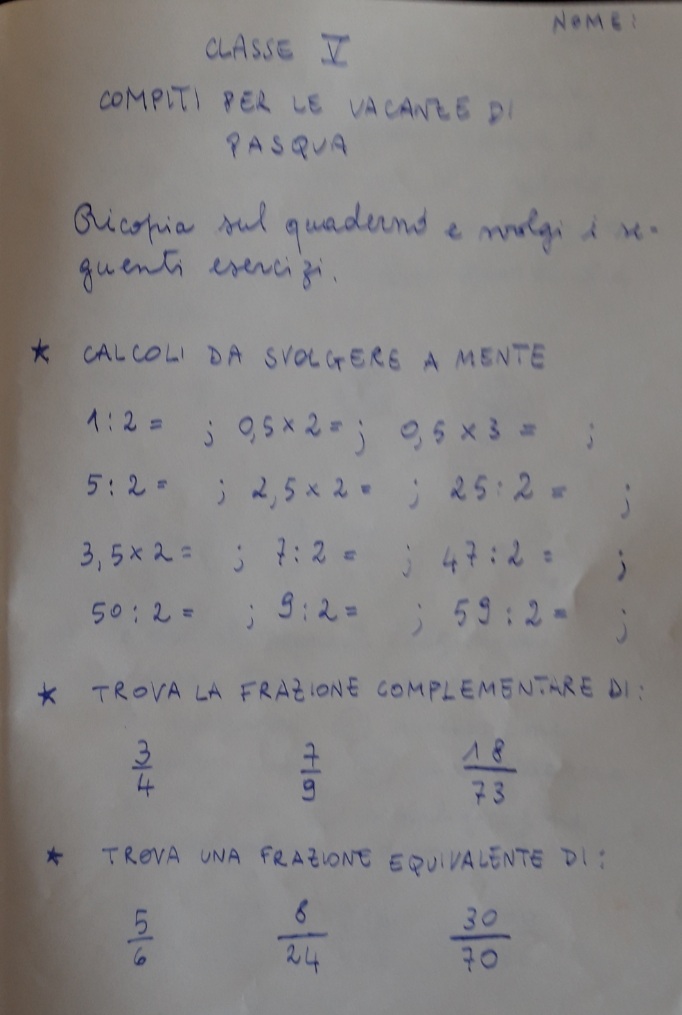 NOME:
CLASSE V
COMPITI PER LE VACANZE DI
PASQUA
Ricopia sul quaderno e svolgi i se-
guenti esercizi.
★ CALCOLI DA SVOLGERE A MENTE
1:2= ; 0,5×2= ; 0,5×3= ;
5:2= ; 2,5×2= ; 25:2= ;
3,5×2= ; 7:2= ; 47:2= ;
50:2= ; 9:2= ; 59:2= ;
★ TROVA LA FRAZIONE COMPLEMENTARE DI:
3/4 7/9 18/73
★ TROVA UNA FRAZIONE EQUIVALENTE DI:
5/6 8/24 30/70